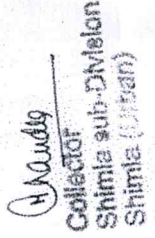 Collector
Shimla sub-Division
Shimla (Urban)